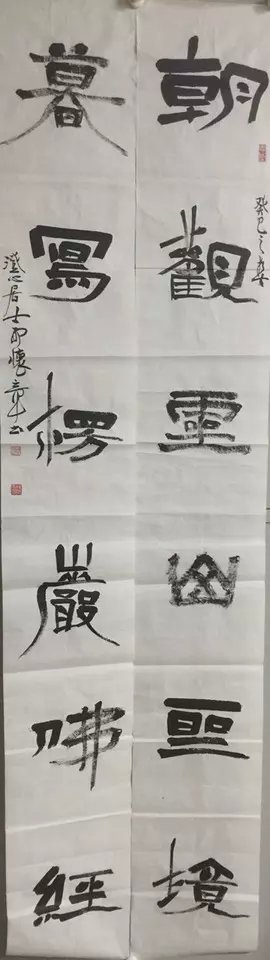 癸巳之
朝觀靈山聖境
暮寫楞嚴佛經
居士